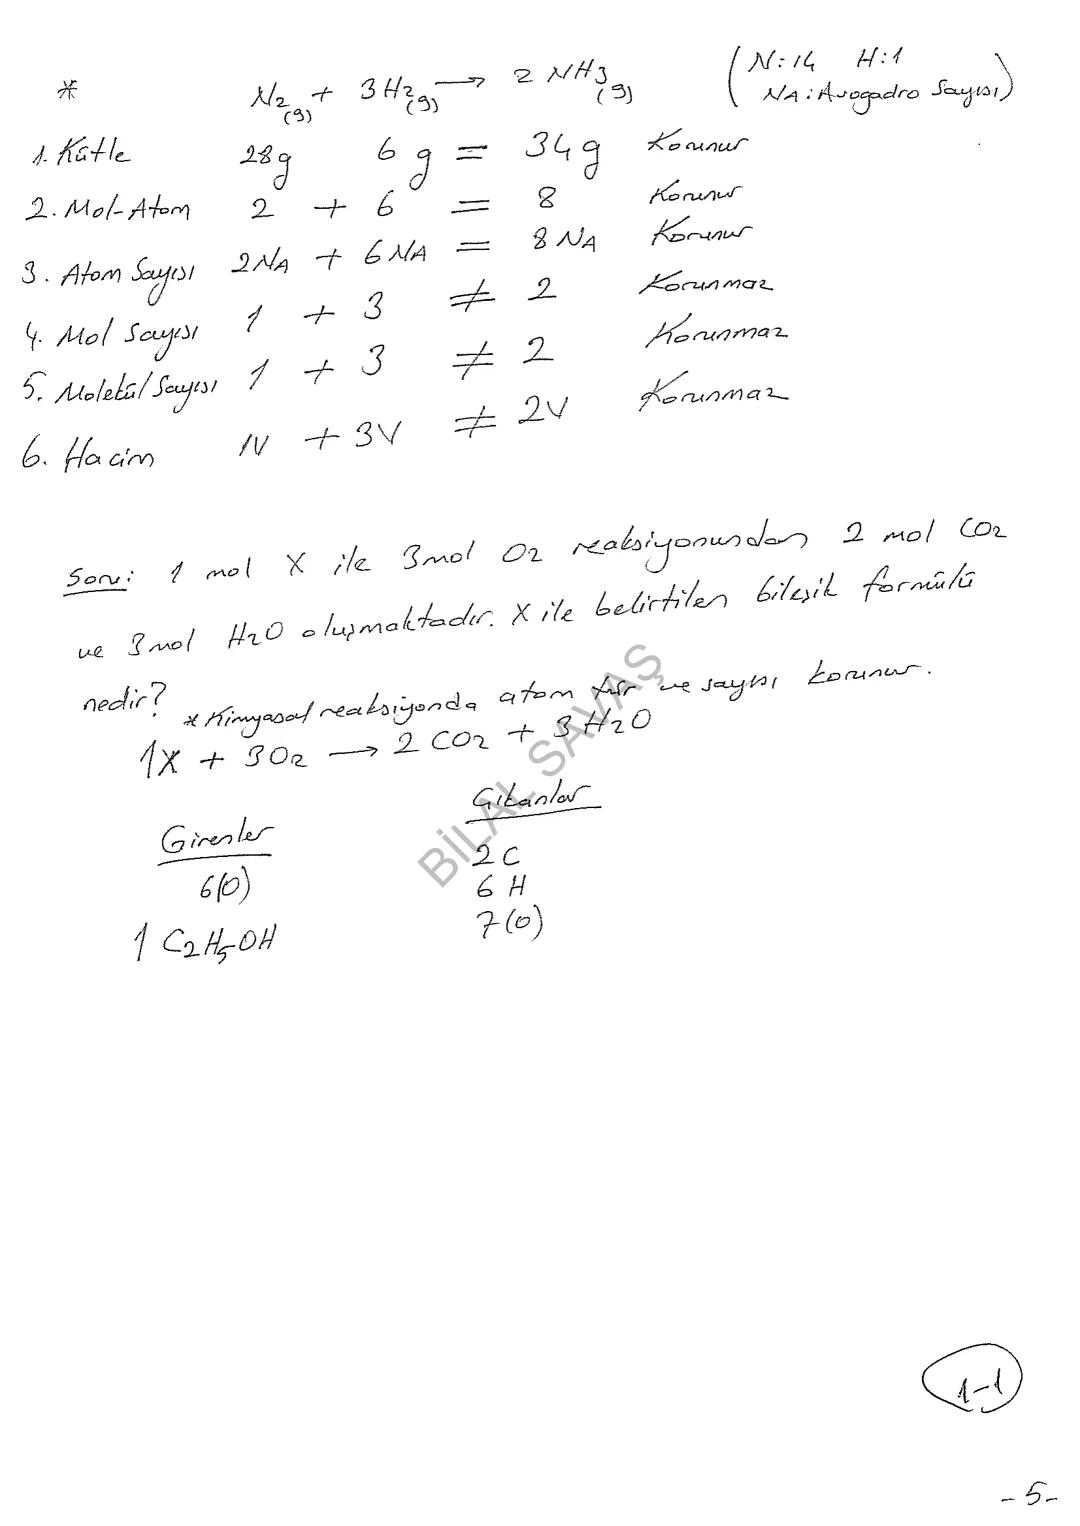 * N2(g) + 3H2(g) → 2 NH3(g) (N:14 H:1
NA: Avogadro Sayısı)
1. Kütle 28g 6g = 34g Korunur
2. Mol-Atom 2 + 6 = 8 Korunur
3. Atom Sayısı 2NA + 6NA = 8NA Korunur
4. Mol Sayısı 1 + 3 ≠ 2 Korunmaz
5. Molekül Sayısı 1 + 3 ≠ 2 Korunmaz
6. Hacim 1V + 3V ≠ 2V Korunmaz
Soru: 1 mol X ile 3mol O2 reaksiyonundan 2 mol CO2
ve 3mol H2O oluşmaktadır. X ile belirtilen bileşik formülü
nedir?
* Kimyasal reaksiyonda atom tür ve sayısı korunur.
1X + 3O2 → 2CO2 + 3H2O
Girenler Çıkanlar
6(O) 2C
6H
7(O)
1 C2H5OH
BİLAL SAVAŞ
1-1
-5-